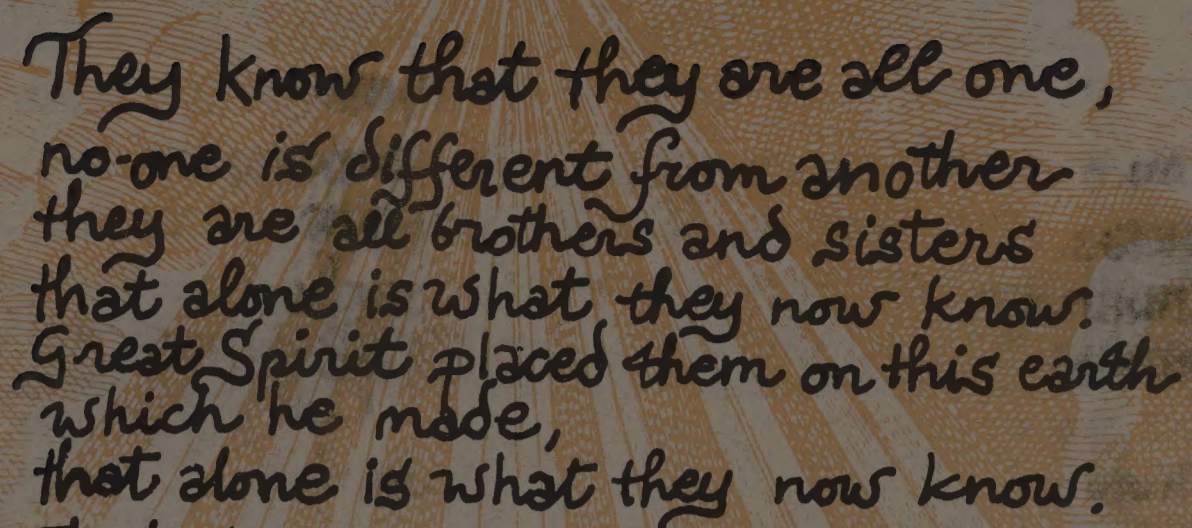 They know that they are all one,
no-one is different from another
they are all brothers and sisters
that alone is what they now know.
Great Spirit placed them on this earth
which he made,
that alone is what they now know.